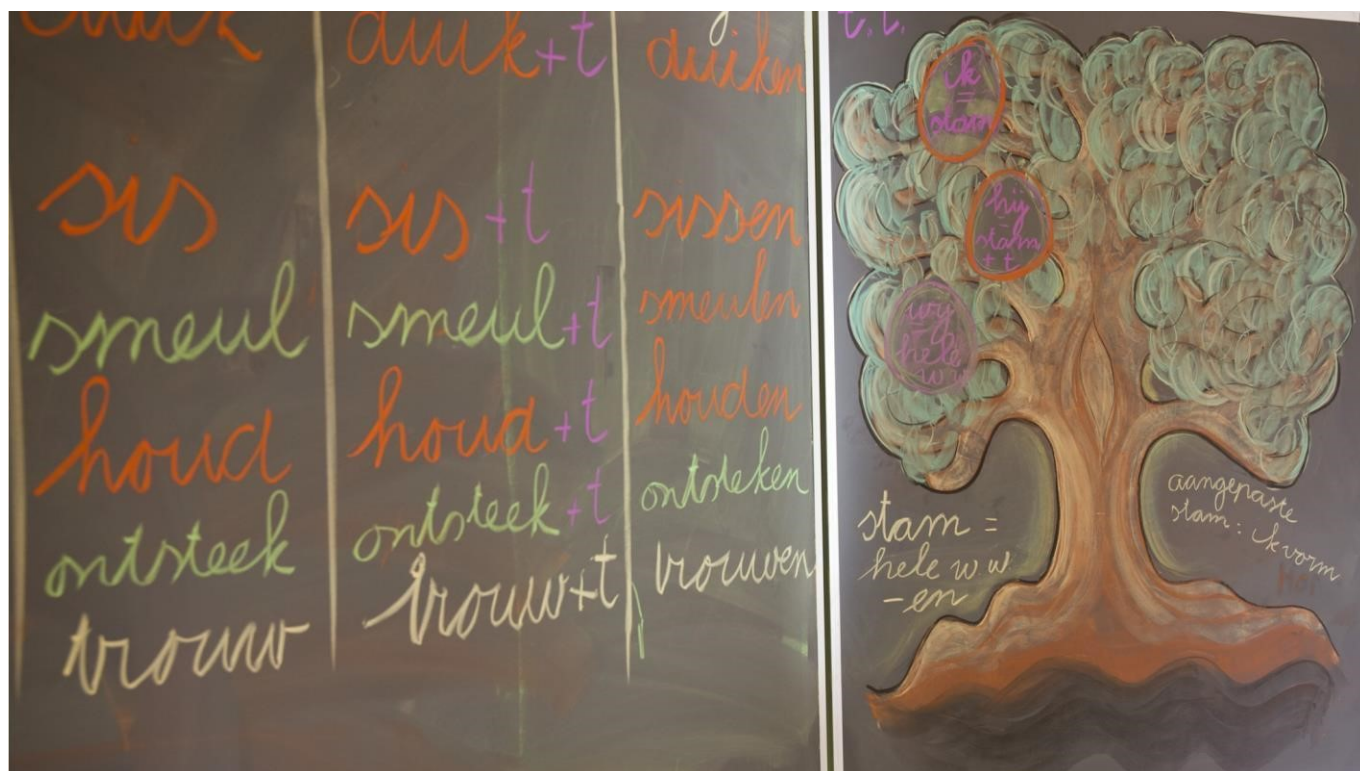 duik duik+t duiken
sis sis+t sissen
smeul smeul+t smeulen
houd houd+t houden
ontsteek ontsteek+t ontsteken
trouw trouw+t trouwen
t.t.
ik
=
stam
hij
=
stam
+t
wij
=
hele
ww
stam =
hele ww
-en
aangepaste
stam: ik vorm